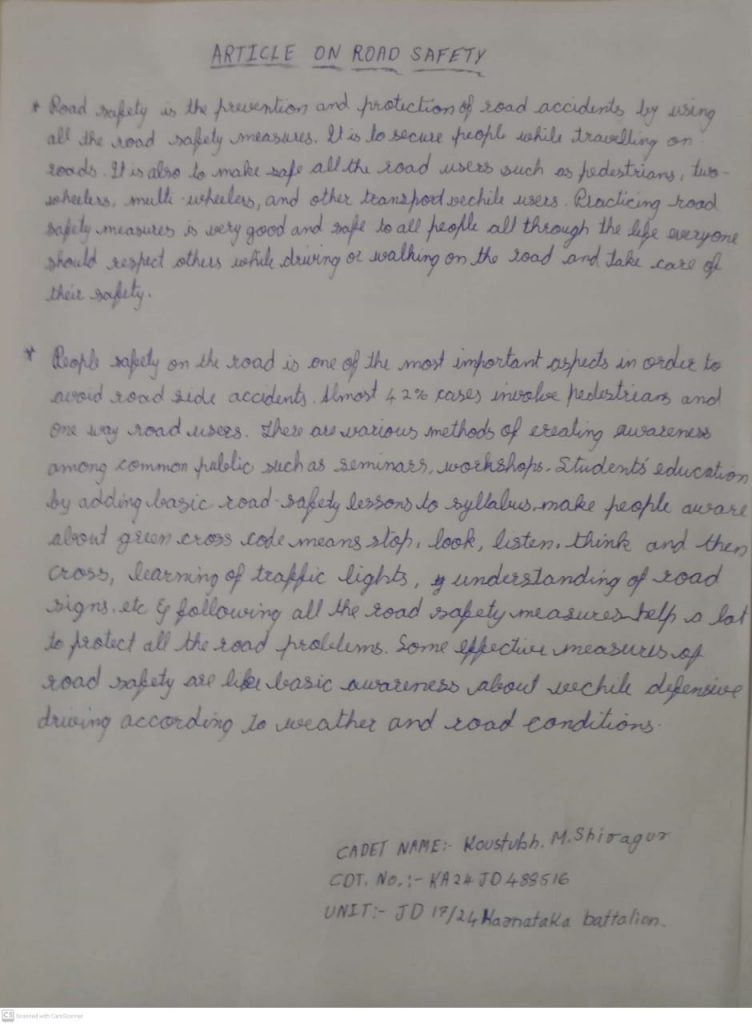 ARTICLE ON ROAD SAFETY
* Road safety is the prevention and protection of road accidents by using
all the road safety measures. It is to secure people while travelling on
roads. It is also to make safe all the road users such as pedestrians, two-
wheelers, multi-wheelers, and other transport vechile users. Practicing road
safety measures is very good and safe to all people all through the life everyone
should respect others while driving or walking on the road and take care of
their safety.
* People safety on the road is one of the most important aspects in order to
avoid road side accidents. Almost 42% cases involve pedestrians and
one way road users. There are various methods of creating awareness
among common public such as seminars, workshops. Students' education
by adding basic road-safety lessons to syllabus, make people aware
about green cross code means stop, look, listen, think and then
cross, learning of traffic lights, understanding of road
signs. etc & following all the road safety measures help a lot
to protect all the road problems. Some effective measures of
road safety are like basic awareness about vechile defensive
driving according to weather and road conditions.
CADET NAME:- Koustubh. M. Shiragur
CDT. No.:- KA24JD488516
UNIT:- JD 17/24 Karnataka battalion.
CS Scanned with CamScanner